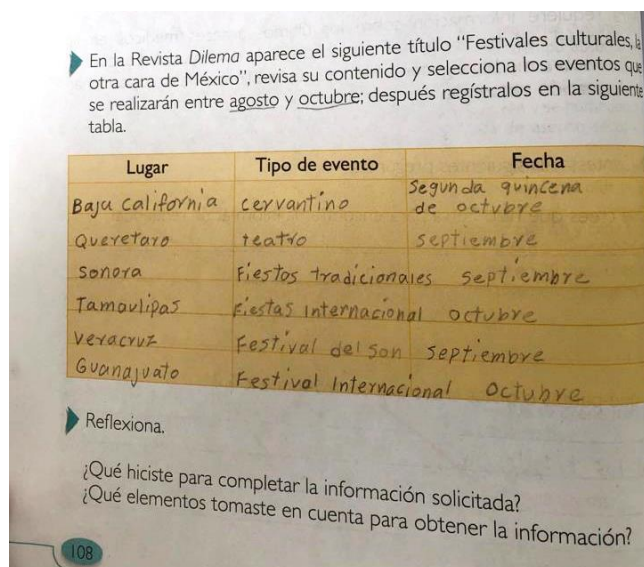 En la Revista Dilema aparece el siguiente título "Festivales culturales, la
otra cara de México", revisa su contenido y selecciona los eventos que
se realizarán entre agosto y octubre; después regístralos en la siguiente
tabla.
Lugar Tipo de evento Fecha
Baja California cervantino Segunda quincena
de octubre
Queretaro teatro septiembre
Sonora Fiestas tradicionales septiembre
Tamaulipas Fiestas Internacional octubre
Veracruz Festival del Son septiembre
Guanajuato Festival Internacional Octubre
Reflexiona.
¿Qué hiciste para completar la información solicitada?
¿Qué elementos tomaste en cuenta para obtener la información?
108